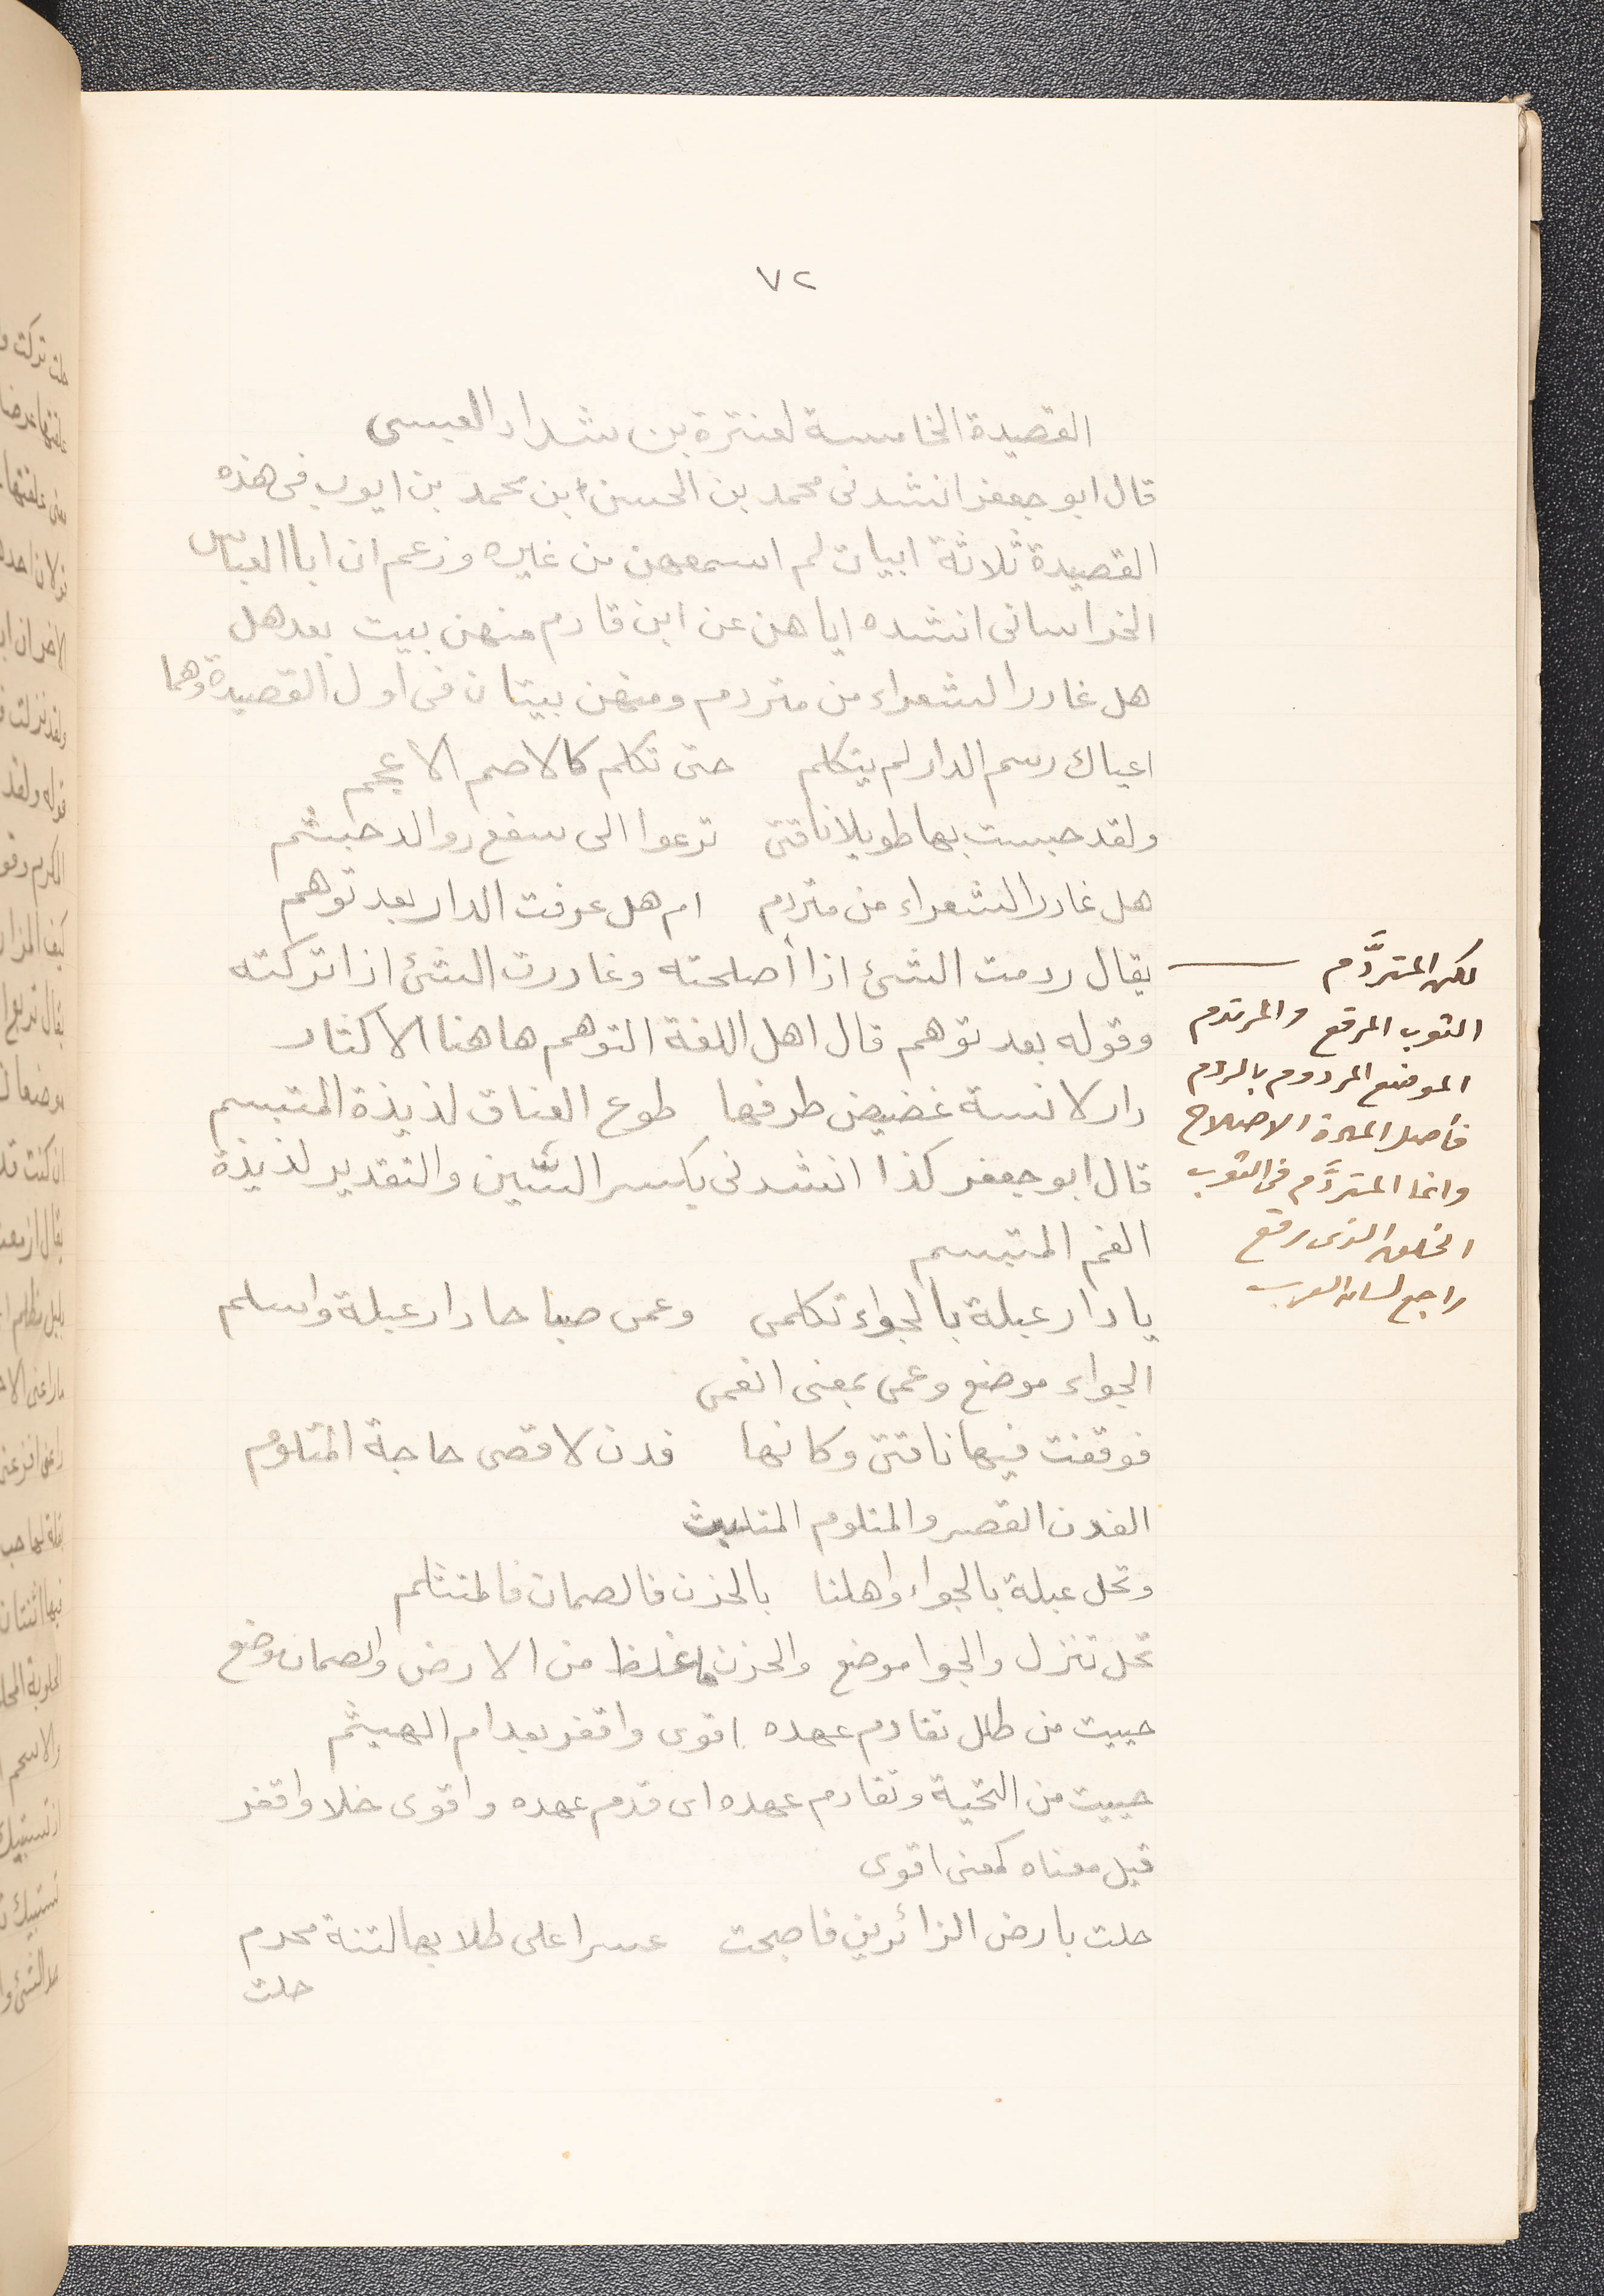 ٧٢
القصيدة الخامسة لعنترة بن شداد العبسى
قال ابو جعفر انشدنى محمد بن الحسن ابن محمد بن ايوب فى هذه
القصيدة ثلاثة ابيات لم اسمعهن من غيره وزعم ان ابا العباس
الخراسانى انشده اياهن عن ابن قادم منهن بيت بعد هل
هل غادر الشعراء من متردم ومنهن بيتان فى اول القصيدة وهما
اعياك رسم الدار لم يتكلم حتى تكلم كالاصم الاعجم
ولقد حبست بها طويلا ناقتى ترعوا الى سفع روالد حبشم
هل غادر الشعراء من متردم ام هل عرفت الدار بعد توهم
يقال ردمت الشئ اذا أصلحته وغادرت الشئ اذا تركته
وقوله بعد توهم قال اهل اللغة التوهم هاهنا الاكثار
دار لانسة غضيض طرفها طوع العناق لذيذة المتبسم
قال ابو جعفر كذا انشدنى بكسر السين والتقدير لذيذة
الفم المتبسم
يا دار عبلة بالجواء تكلمى وعمى صباحا دار عبلة واسلم
الجواء موضع وعمى بمعنى انعمى
فوقفت فيها ناقتى وكانها فدن لاقصى حاجة المتلوم
الفدن القصر والمتلوم المتلبث
وتحل عبلة بالجواء واهلنا بالحزن فالصمان فالمتثلم
تحل تنزل والجوا موضع والحزن ما غلظ من الارض والصمان موضع
حييت من طلل تقادم عهده اقوى واقفر بعد ام الهيثم
حييت من التحية وتقادم عهده اى قدم عهده واقوى خلا واقفر
قيل معناه كمعنى اقوى
حلت بارض الزائرين فاصبحت عسرا على طلابها ابنة محرم
حلت
لكن المتردَّم
الثوب المرقع والمرتدم
الموضع المردوم بالردم
فأصل المادة الاصلاح
وانما المتردَّم فى الثوب
الخلق الذى رقع
راجع لسان العرب